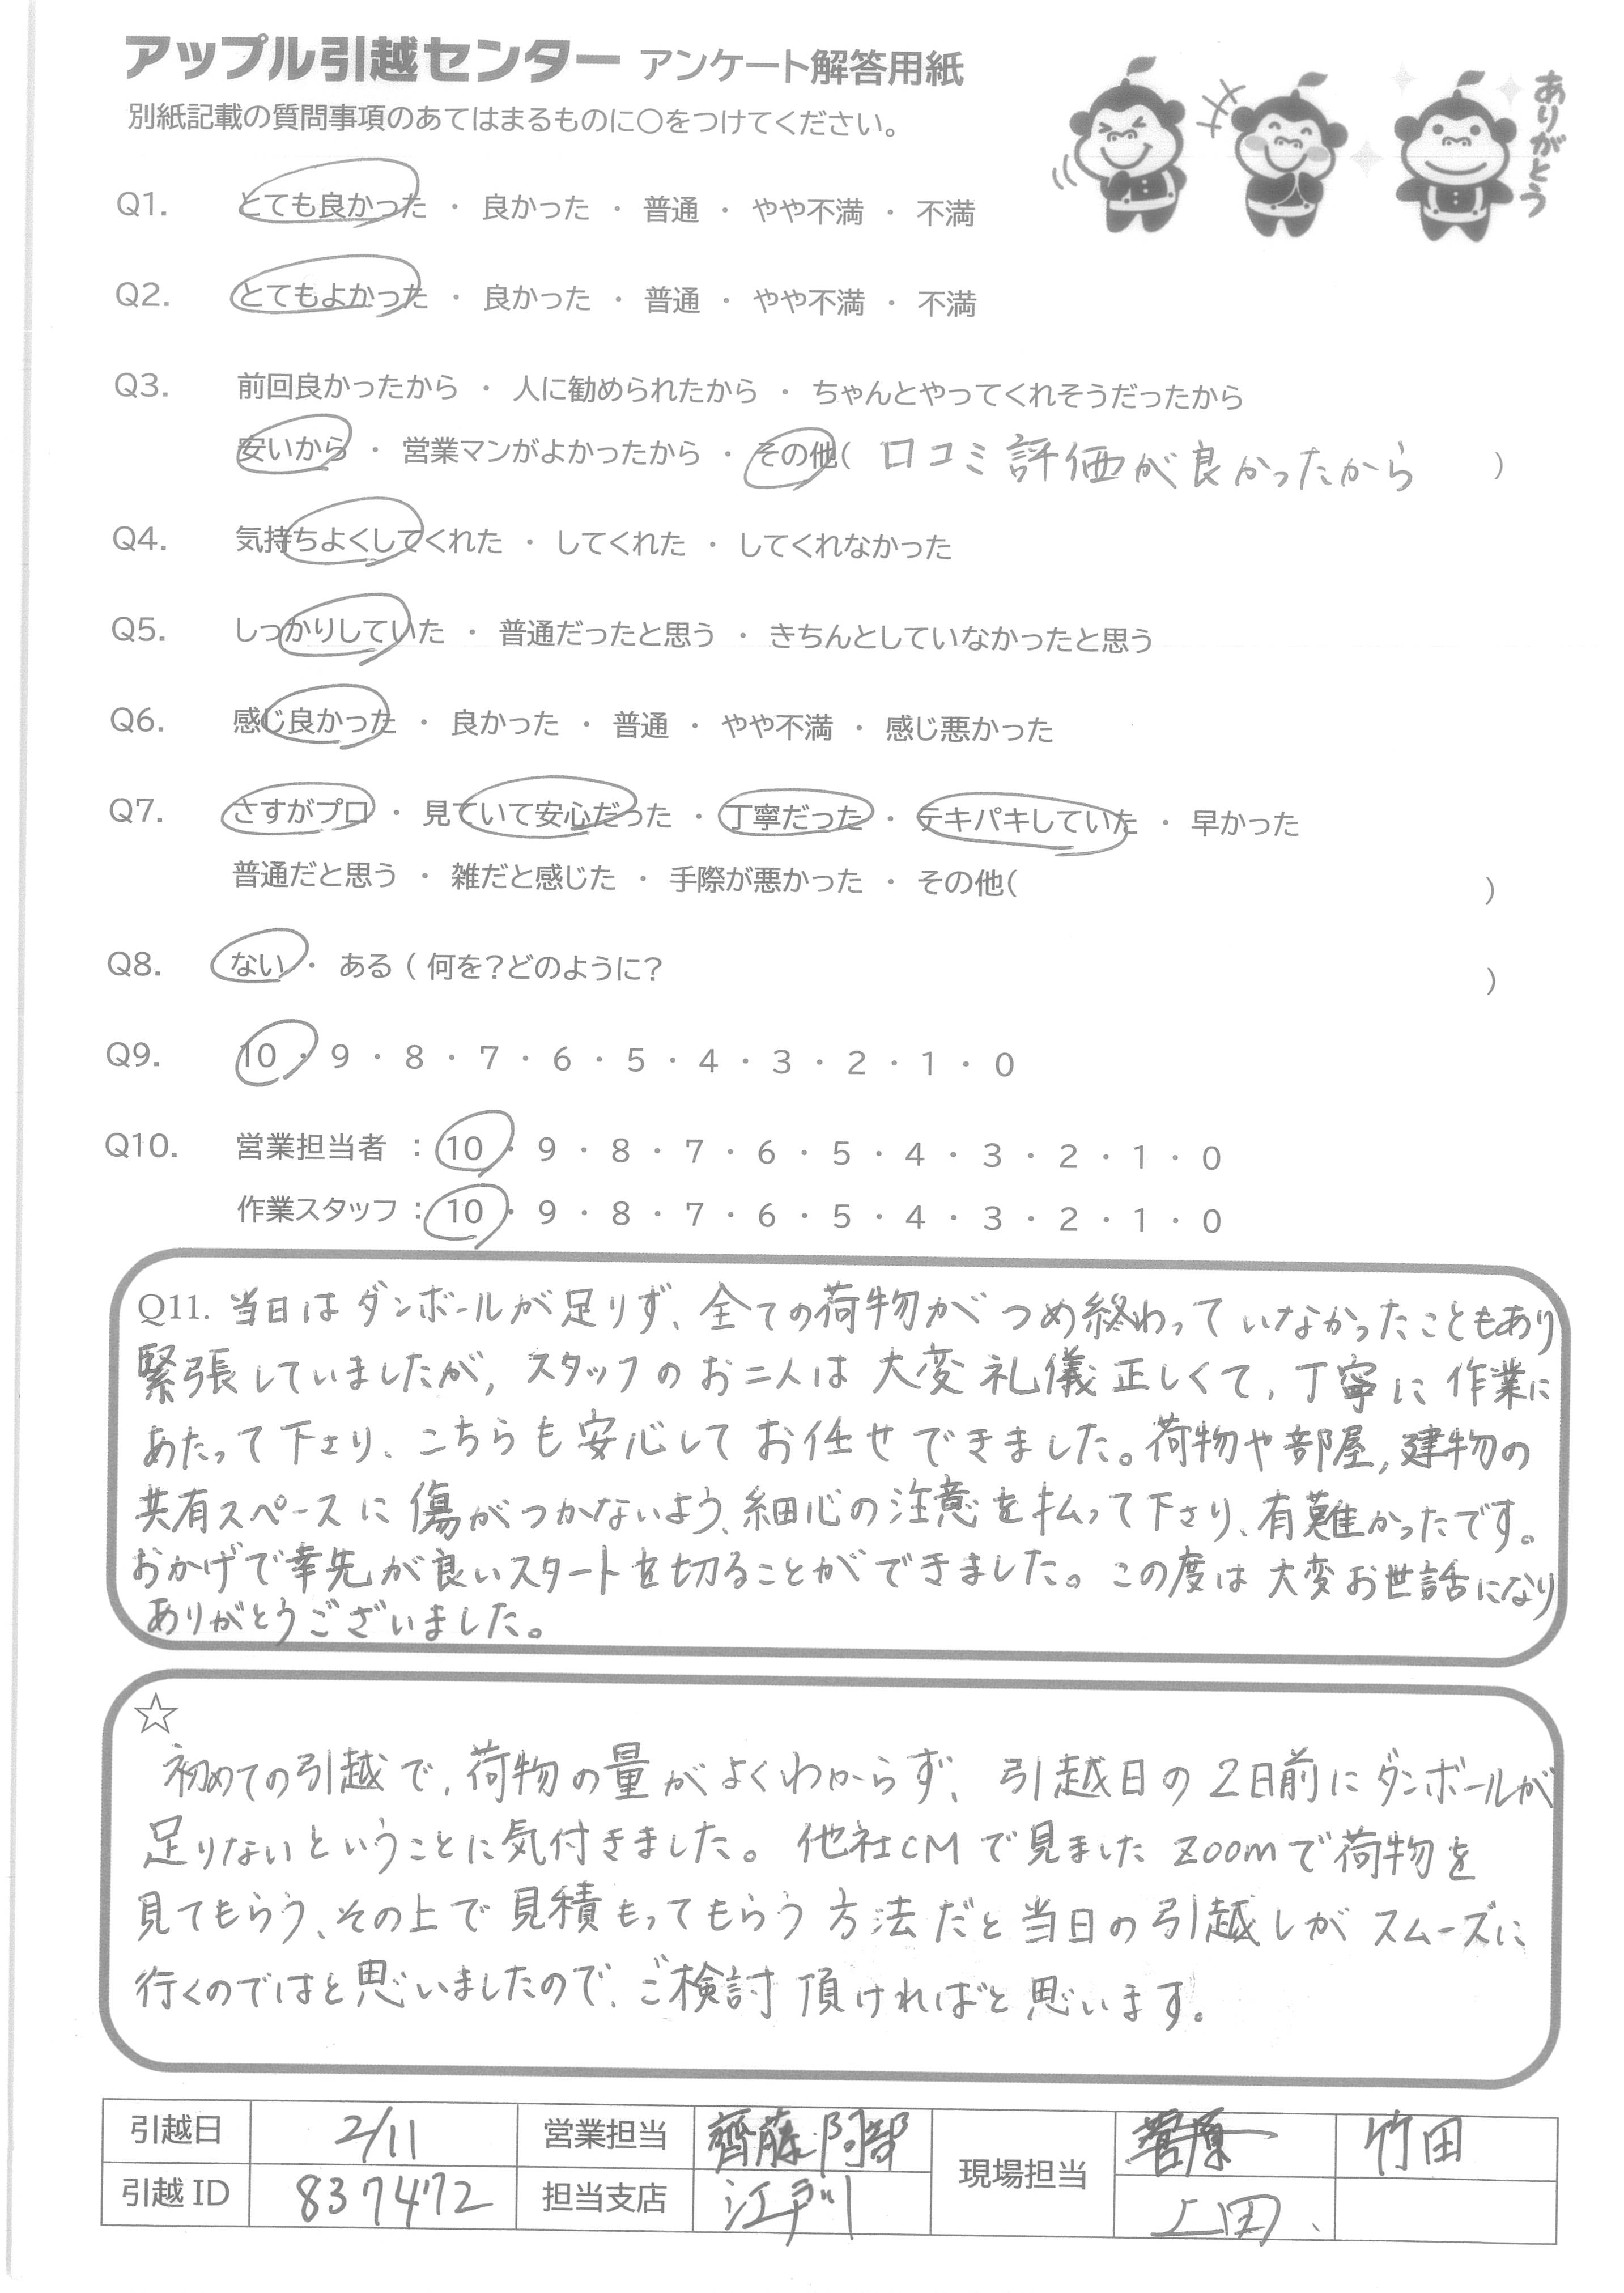 アップル引越センター アンケート解答用紙
別紙記載の質問事項のあてはまるものに○をつけてください。
ありがとう
Q1. とても良かった ・ 良かった ・ 普通 ・ やや不満 ・ 不満
Q2. とてもよかった ・ 良かった ・ 普通 ・ やや不満 ・ 不満
Q3. 前回良かったから ・ 人に勧められたから ・ ちゃんとやってくれそうだったから
安いから ・ 営業マンがよかったから ・ その他( 口コミ評価が良かったから )
Q4. 気持ちよくしてくれた ・ してくれた ・ してくれなかった
Q5. しっかりしていた ・ 普通だったと思う ・ きちんとしていなかったと思う
Q6. 感じ良かった ・ 良かった ・ 普通 ・ やや不満 ・ 感じ悪かった
Q7. さすがプロ ・ 見ていて安心だった ・ 丁寧だった ・ テキパキしていた ・ 早かった
普通だと思う ・ 雑だと感じた ・ 手際が悪かった ・ その他( )
Q8. ない ・ ある ( 何を?どのように? )
Q9. 10 ・ 9 ・ 8 ・ 7 ・ 6 ・ 5 ・ 4 ・ 3 ・ 2 ・ 1 ・ 0
Q10. 営業担当者 : 10 ・ 9 ・ 8 ・ 7 ・ 6 ・ 5 ・ 4 ・ 3 ・ 2 ・ 1 ・ 0
作業スタッフ : 10 ・ 9 ・ 8 ・ 7 ・ 6 ・ 5 ・ 4 ・ 3 ・ 2 ・ 1 ・ 0
Q11. 当日はダンボールが足りず、全ての荷物がつめ終わっていなかったこともあり
緊張していましたが、スタッフのお二人は大変礼儀正しくて、丁寧に作業に
あたって下さり、こちらも安心してお任せできました。荷物や部屋、建物の
共有スペースに傷がつかないよう、細心の注意を払って下さり、有難かったです。
おかげで幸先が良いスタートを切ることができました。この度は大変お世話になり
ありがとうございました。
☆
初めての引越で、荷物の量がよくわからず、引越日の2日前にダンボールが
足りないということに気付きました。他社CMで見ました zoomで荷物を
見てもらう、その上で見積もってもらう方法だと当日の引越しがスムーズに
行くのではと思いましたので、ご検討頂ければと思います。
引越日 2/11 営業担当 齊藤・阿部 現場担当 菅原 竹田
引越ID 837472 担当支店 江戸川 上田